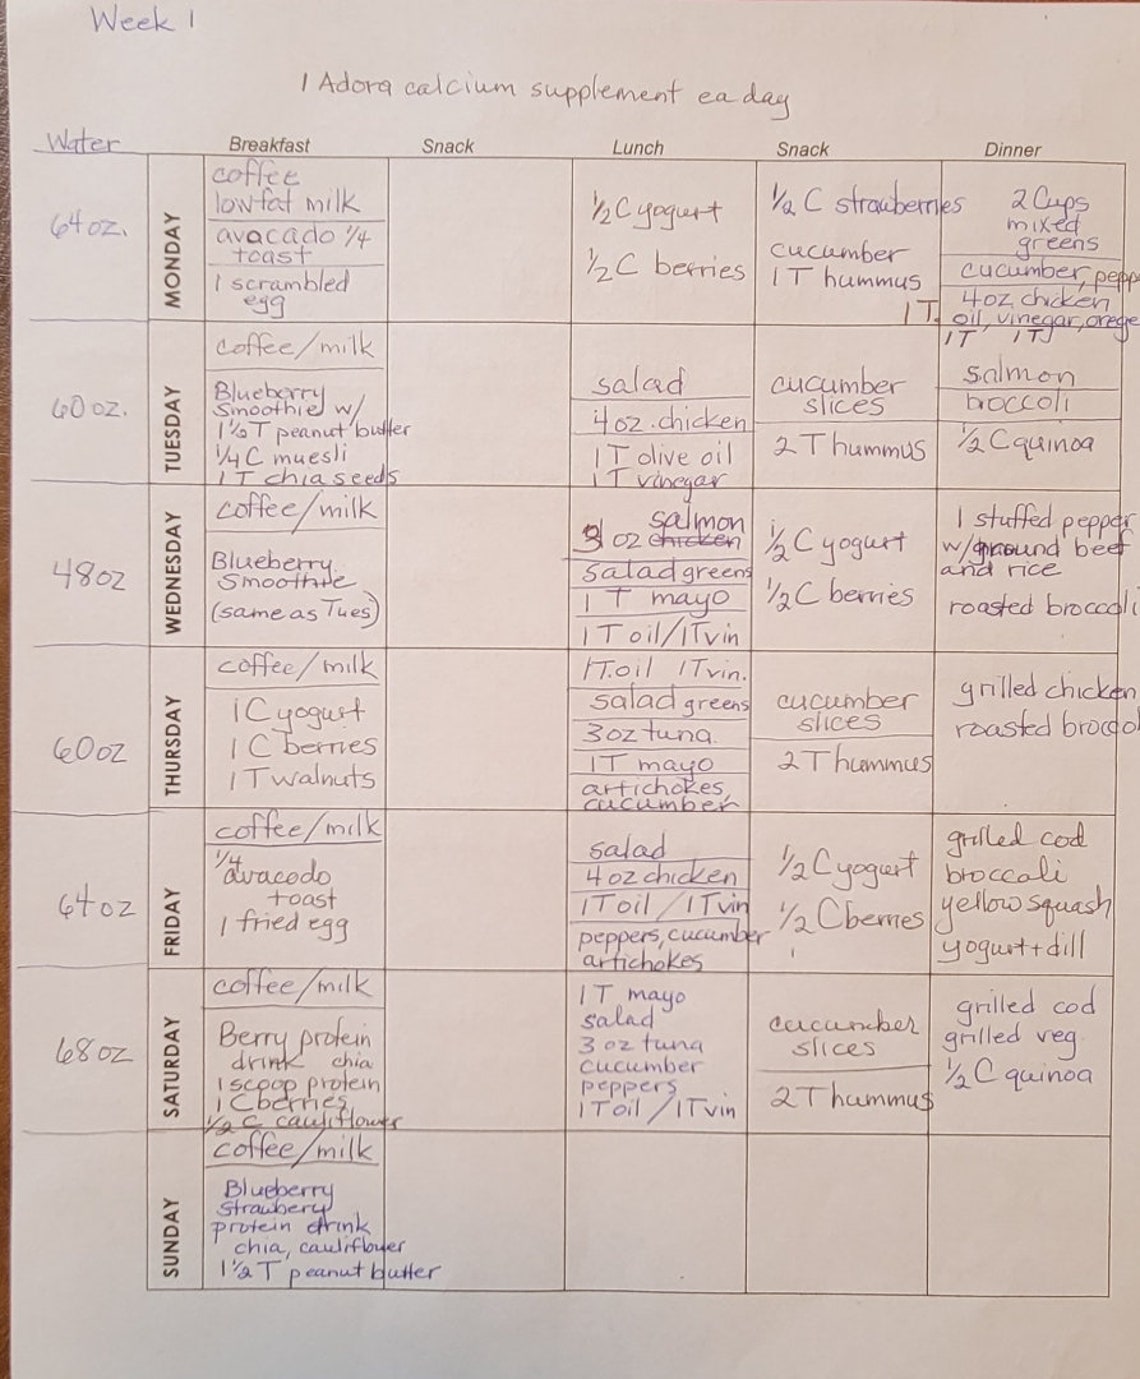 Week 1
1 Adora calcium supplement ea day
Water Breakfast Snack Lunch Snack Dinner
64oz.
MONDAY
coffee
lowfat milk
avacado 1/4
toast
1 scrambled
egg
1/2 C yogurt
1/2 C berries
1/2 C strawberries
cucumber
1 T hummus
2 Cups
mixed
greens
cucumber, pepp
4oz chicken
1 T. oil, vinegar, orege
1T 1T
60oz.
TUESDAY
coffee/milk
Blueberry
Smoothie w/
1 1/2 T peanut butter
1/4 C muesli
1 T chia seeds
salad
4oz. chicken
1 T olive oil
1 T vinegar
cucumber
slices
2 T hummus
salmon
broccoli
1/2 C quinoa
48oz
WEDNESDAY
coffee/milk
Blueberry
Smoothie
(same as Tues)
salmon
3 oz chicken
salad greens
1 T mayo
1 T oil/1Tvin
1/2 C yogurt
1/2 C berries
1 stuffed pepper
w/ground beef
and rice
roasted broccoli
60oz
THURSDAY
coffee/milk
1 C yogurt
1 C berries
1 T walnuts
1T.oil 1Tvin.
salad greens
3oz tuna.
1T mayo
artichokes,
cucumber
cucumber
slices
2 T hummus
grilled chicken
roasted broccol
64oz
FRIDAY
coffee/milk
1/4
avacodo
toast
1 fried egg
salad
4oz chicken
1Toil/1Tvin
peppers, cucumber
artichokes
1/2 C yogurt
1/2 C berries
grilled cod
broccoli
yellow squash
yogurt+dill
68oz
SATURDAY
coffee/milk
Berry protein
drink chia
1 scoop protein
1 C berries
1/2 C cauliflower
1T mayo
salad
3 oz tuna
cucumber
peppers
1Toil/1Tvin
cucumber
slices
2 T hummus
grilled cod
grilled veg
1/2 C quinoa
SUNDAY
coffee/milk
Blueberry
Strawbery
protein drink
chia, cauliflower
1 1/2 T peanut butter